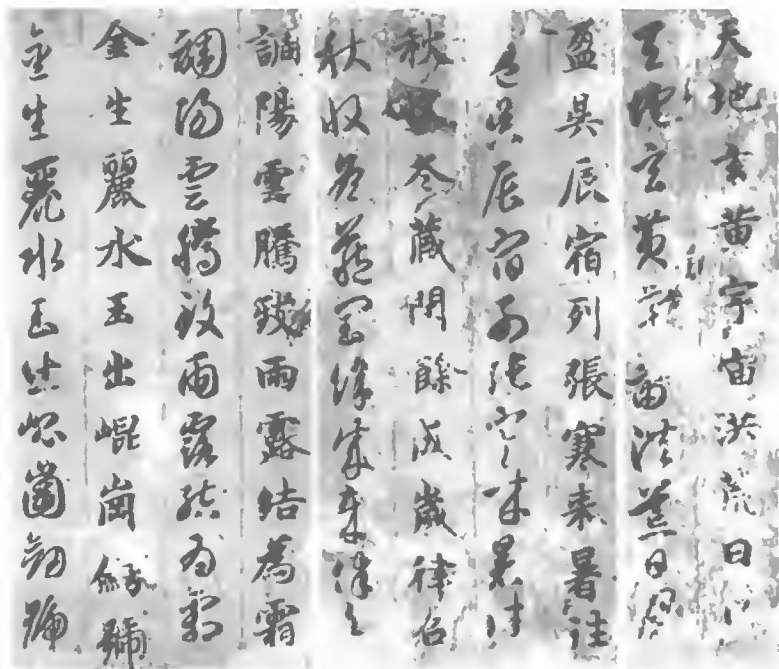 天地玄黄宇宙洪荒日月
天地玄黄宇宙洪荒日月
盈昃辰宿列張寒来暑往
盈昃辰宿列張寒来暑往
秋收冬藏閏餘成歲律召
秋收冬藏閏餘成歲律召
調陽雲騰致雨露結為霜
調陽雲騰致雨露結為霜
金生麗水玉出崐崗劔號
金生麗水玉出崐崗劔號